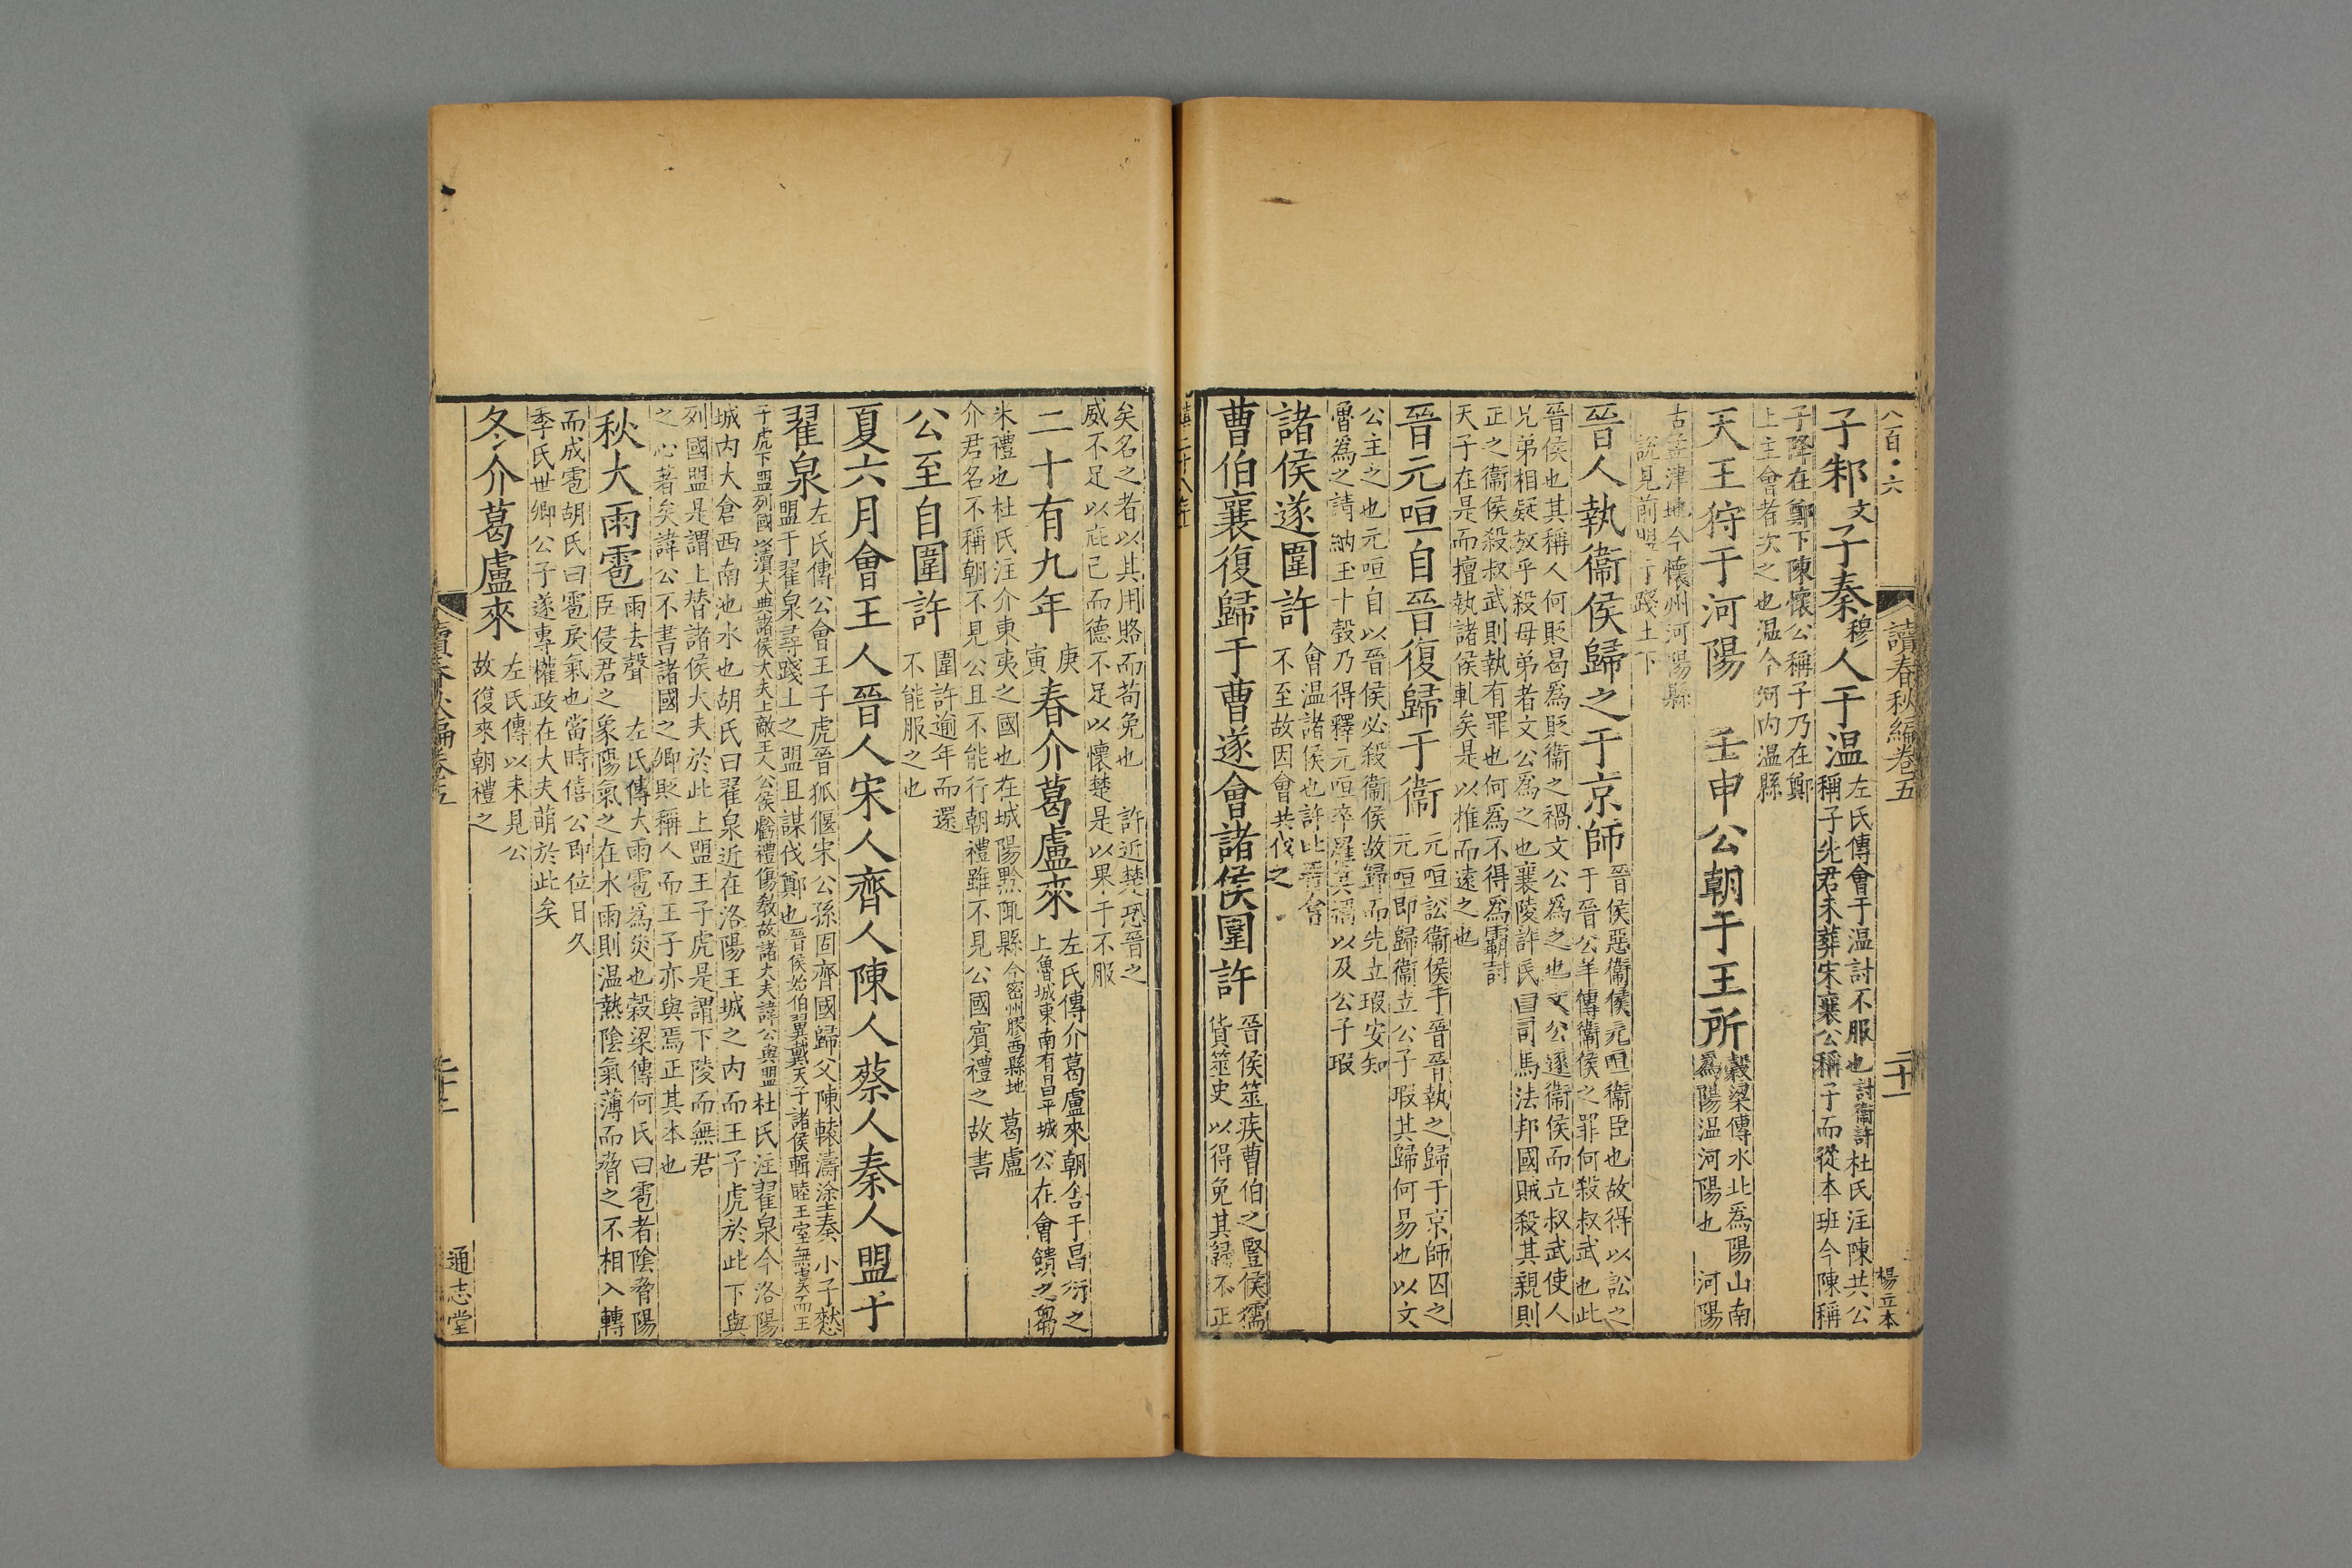 八百○六
讀春秋編卷五
二十一
楊立本
子邾文子秦穆人于温左氏傳會于温討不服也討衛許杜氏注陳共公
稱子先君未葬宋襄公稱子而從本班今陳稱
子降在鄭下陳懷公稱子乃在鄭
上主會者次之也温今河内温縣
天王狩于河陽 壬申公朝于王所穀梁傳水北為陽山南
為陽温河陽也 河陽
古孟津地今懷州河陽縣
說見前盟于踐土下
晉人執衛侯歸之于京師晉侯惡衛侯元咺衛臣也故得以訟之
于晉公羊傳衛侯之罪何殺叔武也此
晉侯也其稱人何貶曷為貶衛之禍文公為之也文公逐衛侯而立叔武使人
兄弟相疑放乎殺母弟者文公為之也襄陵許氏曰司馬法邦國賊殺其親則
正之衛侯殺叔武則執有罪也何為不得為霸討
天子在是而擅執諸侯軋矣是以推而遠之也
晉元咺自晉復歸于衛元咺訟衛侯于晉晉執之歸于京師囚之
元咺即歸衛立公子瑕其歸何易也以文
公主之也元咺自以晉侯必殺衛侯故歸而先立瑕安知
魯為之請納玉十瑴乃得釋元咺卒罹其禍以及公子瑕
諸侯遂圍許會温諸侯也許比再會
不至故因會共伐之
曹伯襄復歸于曹遂會諸侯圍許晉侯筮疾曹伯之豎侯獳
貨筮史以得免其歸不正
矣名之者以其用賂而苟免也 許近楚恐晉之
威不足以庇己而德不足以懷楚是以果于不服
二十有九年庚
寅春介葛盧來左氏傳介葛盧來朝舍于昌衍之
上魯城東南有昌平城公在會饋之芻
米禮也杜氏注介東夷之國也在城陽黔陬縣今密州膠西縣地 葛盧
介君名不稱朝不見公且不能行朝禮雖不見公國賓禮之故書
公至自圍許圍許逾年而還
不能服之也
夏六月會王人晉人宋人齊人陳人蔡人秦人盟于
翟泉左氏傳公會王子虎晉狐偃宋公孫固齊國歸父陳轅濤塗秦小子憖
盟于翟泉尋踐土之盟且謀伐鄭也晉侯始伯翼戴天子諸侯輯睦王室無虞而王
子虎下盟列國以瀆大典諸侯大夫上敵王人公侯虧禮傷敎故諸大夫諱公與盟杜氏注翟泉今洛陽
城内大倉西南池水也胡氏曰翟泉近在洛陽王城之内而王子虎於此下與
列國盟是謂上替諸侯大夫於此上盟王子虎是謂下陵而無君
之心著矣諱公不書諸國之卿貶稱人而王子亦與焉正其本也
秋大雨雹雨去聲 左氏傳大雨雹為災也穀梁傳何氏曰雹者陰脅陽
臣侵君之象陽氣之在水雨則温熱陰氣薄而脅之不相入轉
而成雹胡氏曰雹戾氣也當時僖公即位日久
季氏世卿公子遂專權政在大夫萌於此矣
冬介葛盧來左氏傳以未見公
故復來朝禮之
讀春秋編卷五
二十一
通志堂